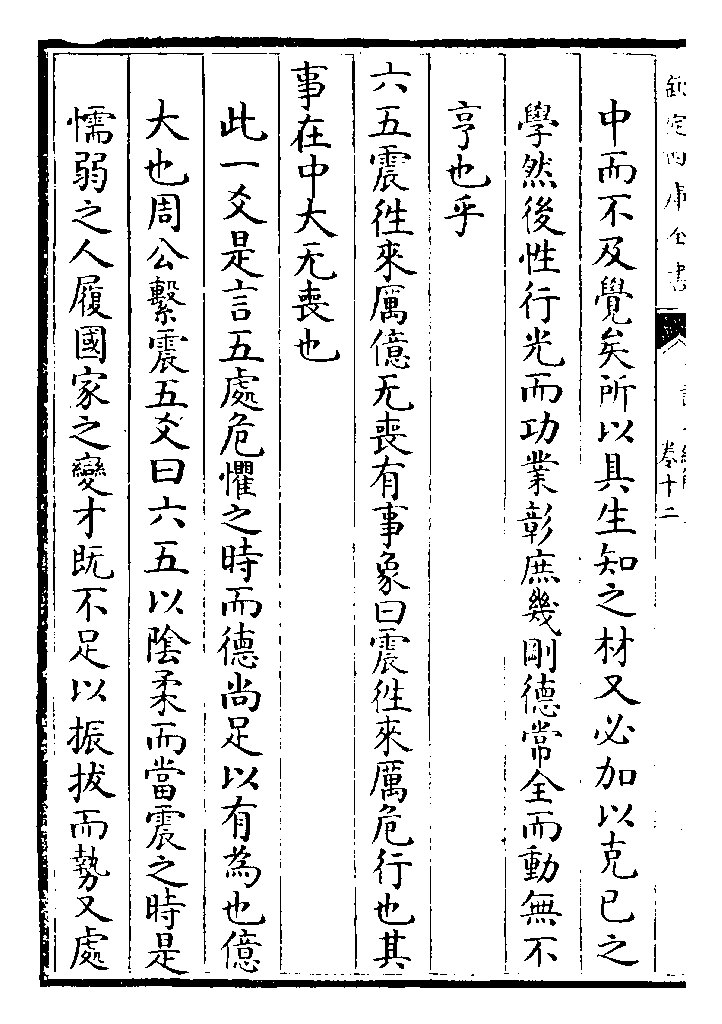 欽定四庫全書
卷十二
中而不及覺矣所以具生知之材又必加以克已之
學然後性行光而功業彰庶幾剛德常全而動無不
亨也乎
六五震徃來厲億无喪有事象曰震徃來厲危行也其
事在中大无喪也
此一爻是言五處危懼之時而德尚足以有為也億
大也周公繫震五爻曰六五以陰柔而當震之時是
懦弱之人履國家之變才既不足以振拔而勢又處